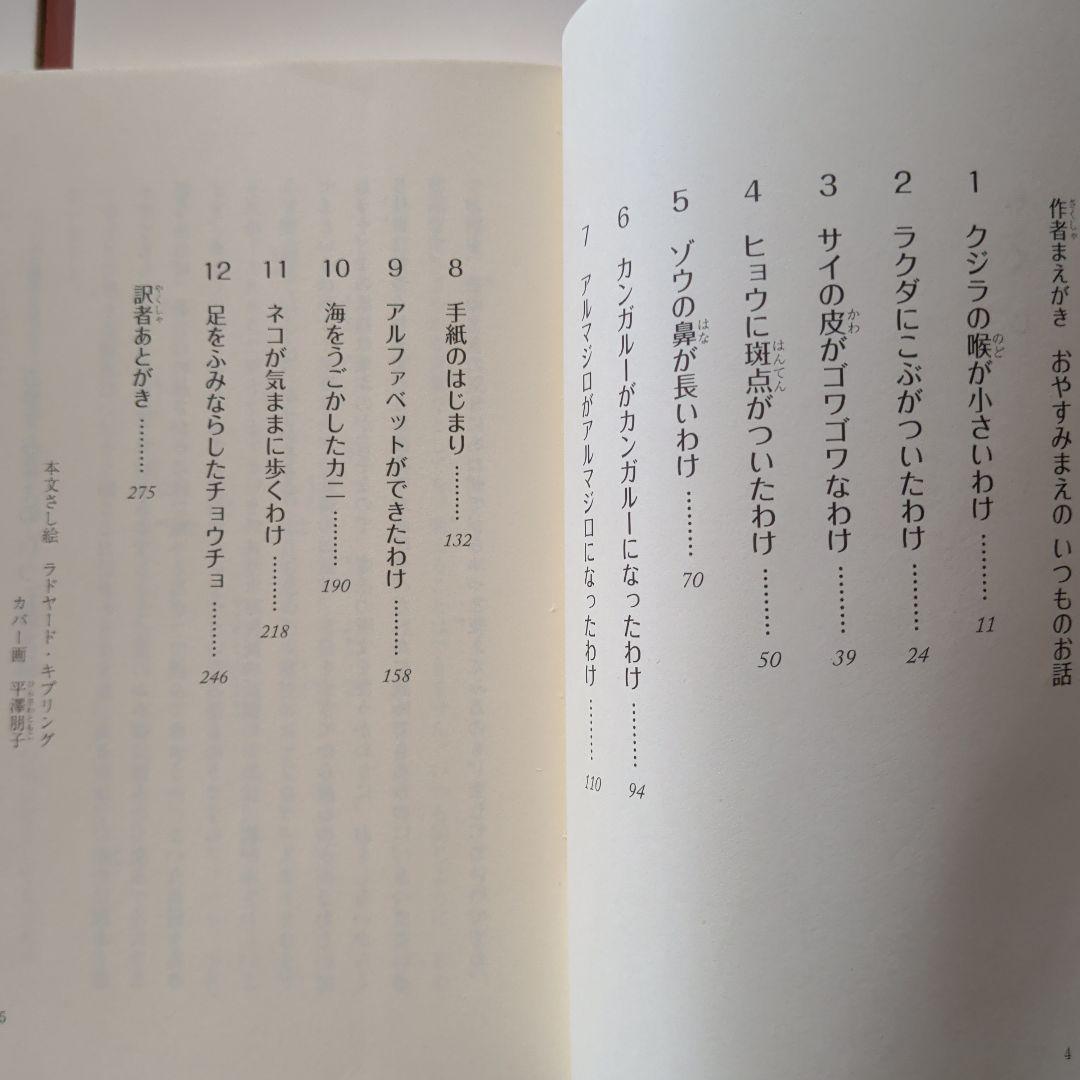 作者まえがき おやすみまえの いつものお話
1 クジラの喉が小さいわけ ……… 11
2 ラクダにこぶがついたわけ ……… 24
3 サイの皮がゴワゴワなわけ ……… 39
4 ヒョウに斑点がついたわけ ……… 50
5 ゾウの鼻が長いわけ ……… 70
6 カンガルーがカンガルーになったわけ ……… 94
7 アルマジロがアルマジロになったわけ ……… 110
4
8 手紙のはじまり ……… 132
9 アルファベットができたわけ ……… 158
10 海をうごかしたカニ ……… 190
11 ネコが気ままに歩くわけ ……… 218
12 足をふみならしたチョウチョ ……… 246
訳者あとがき ……… 275
本文さし絵 ラドヤード・キプリング
カバー画 平澤朋子
5